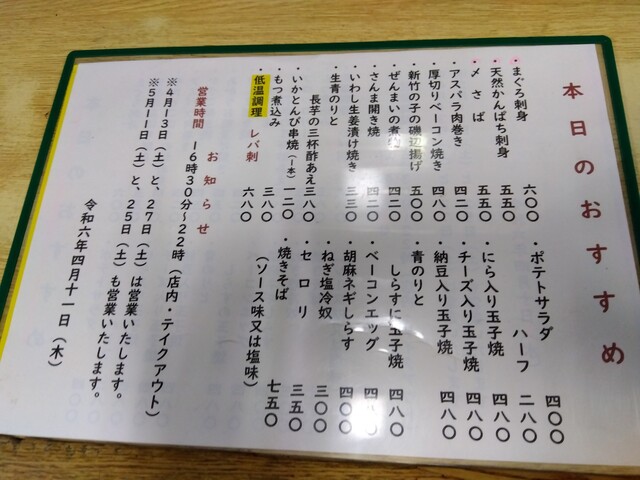 本日のおすすめ
・まぐろ刺身 六〇〇
・天然かんぱち刺身 五五〇
・〆さば 五五〇
・アスパラ肉巻き 四二〇
・厚切りベーコン焼き 四八〇
・新竹の子の磯辺揚げ 五〇〇
・ぜんまいの煮物 四二〇
・さんま開き焼 四二〇
・いわし生姜漬け焼き 三三〇
・生青のりと
長芋の三杯酢あえ 三八〇
・いかとんび串焼(一本) 一二〇
・もつ煮込み 三八〇
・低温調理 レバ刺 六八〇
・ポテトサラダ 四〇〇
ハーフ 二八〇
・にら入り玉子焼 四八〇
・チーズ入り玉子焼 四八〇
・納豆入り玉子焼 四八〇
・青のりと
しらすに玉子焼 四八〇
・ベーコンエッグ 四八〇
・胡麻ネギしらす 四〇〇
・ねぎ塩冷奴 三〇〇
・セロリ 三五〇
・焼きそば
(ソース味又は塩味) 七五〇
お知らせ
営業時間 16時30分~22時(店内・テイクアウト)
※4月13日(土)と、27日(土)は営業いたします。
※5月11日(土)と、25日(土)も営業いたします。
令和六年四月十一日(木)